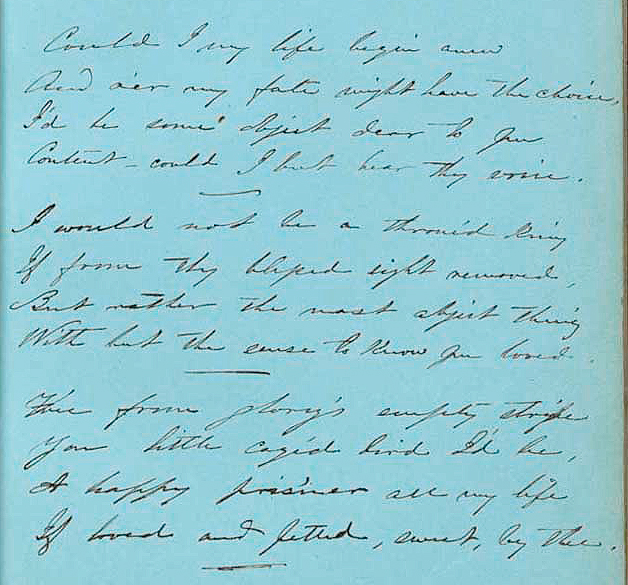 Could I my life begin anew
And o'er my fate might have the choice,
I'd be some object dear to you
Content - could I but hear thy voice.
I would not be a throned King
If from thy blessed sight removed,
But rather the most abject thing
With but the sense to know you loved.
Free from glory's empty strife
Yon little cag'd bird I'd be,
A happy pris'ner all my life
If loved and petted, sweet, by thee.